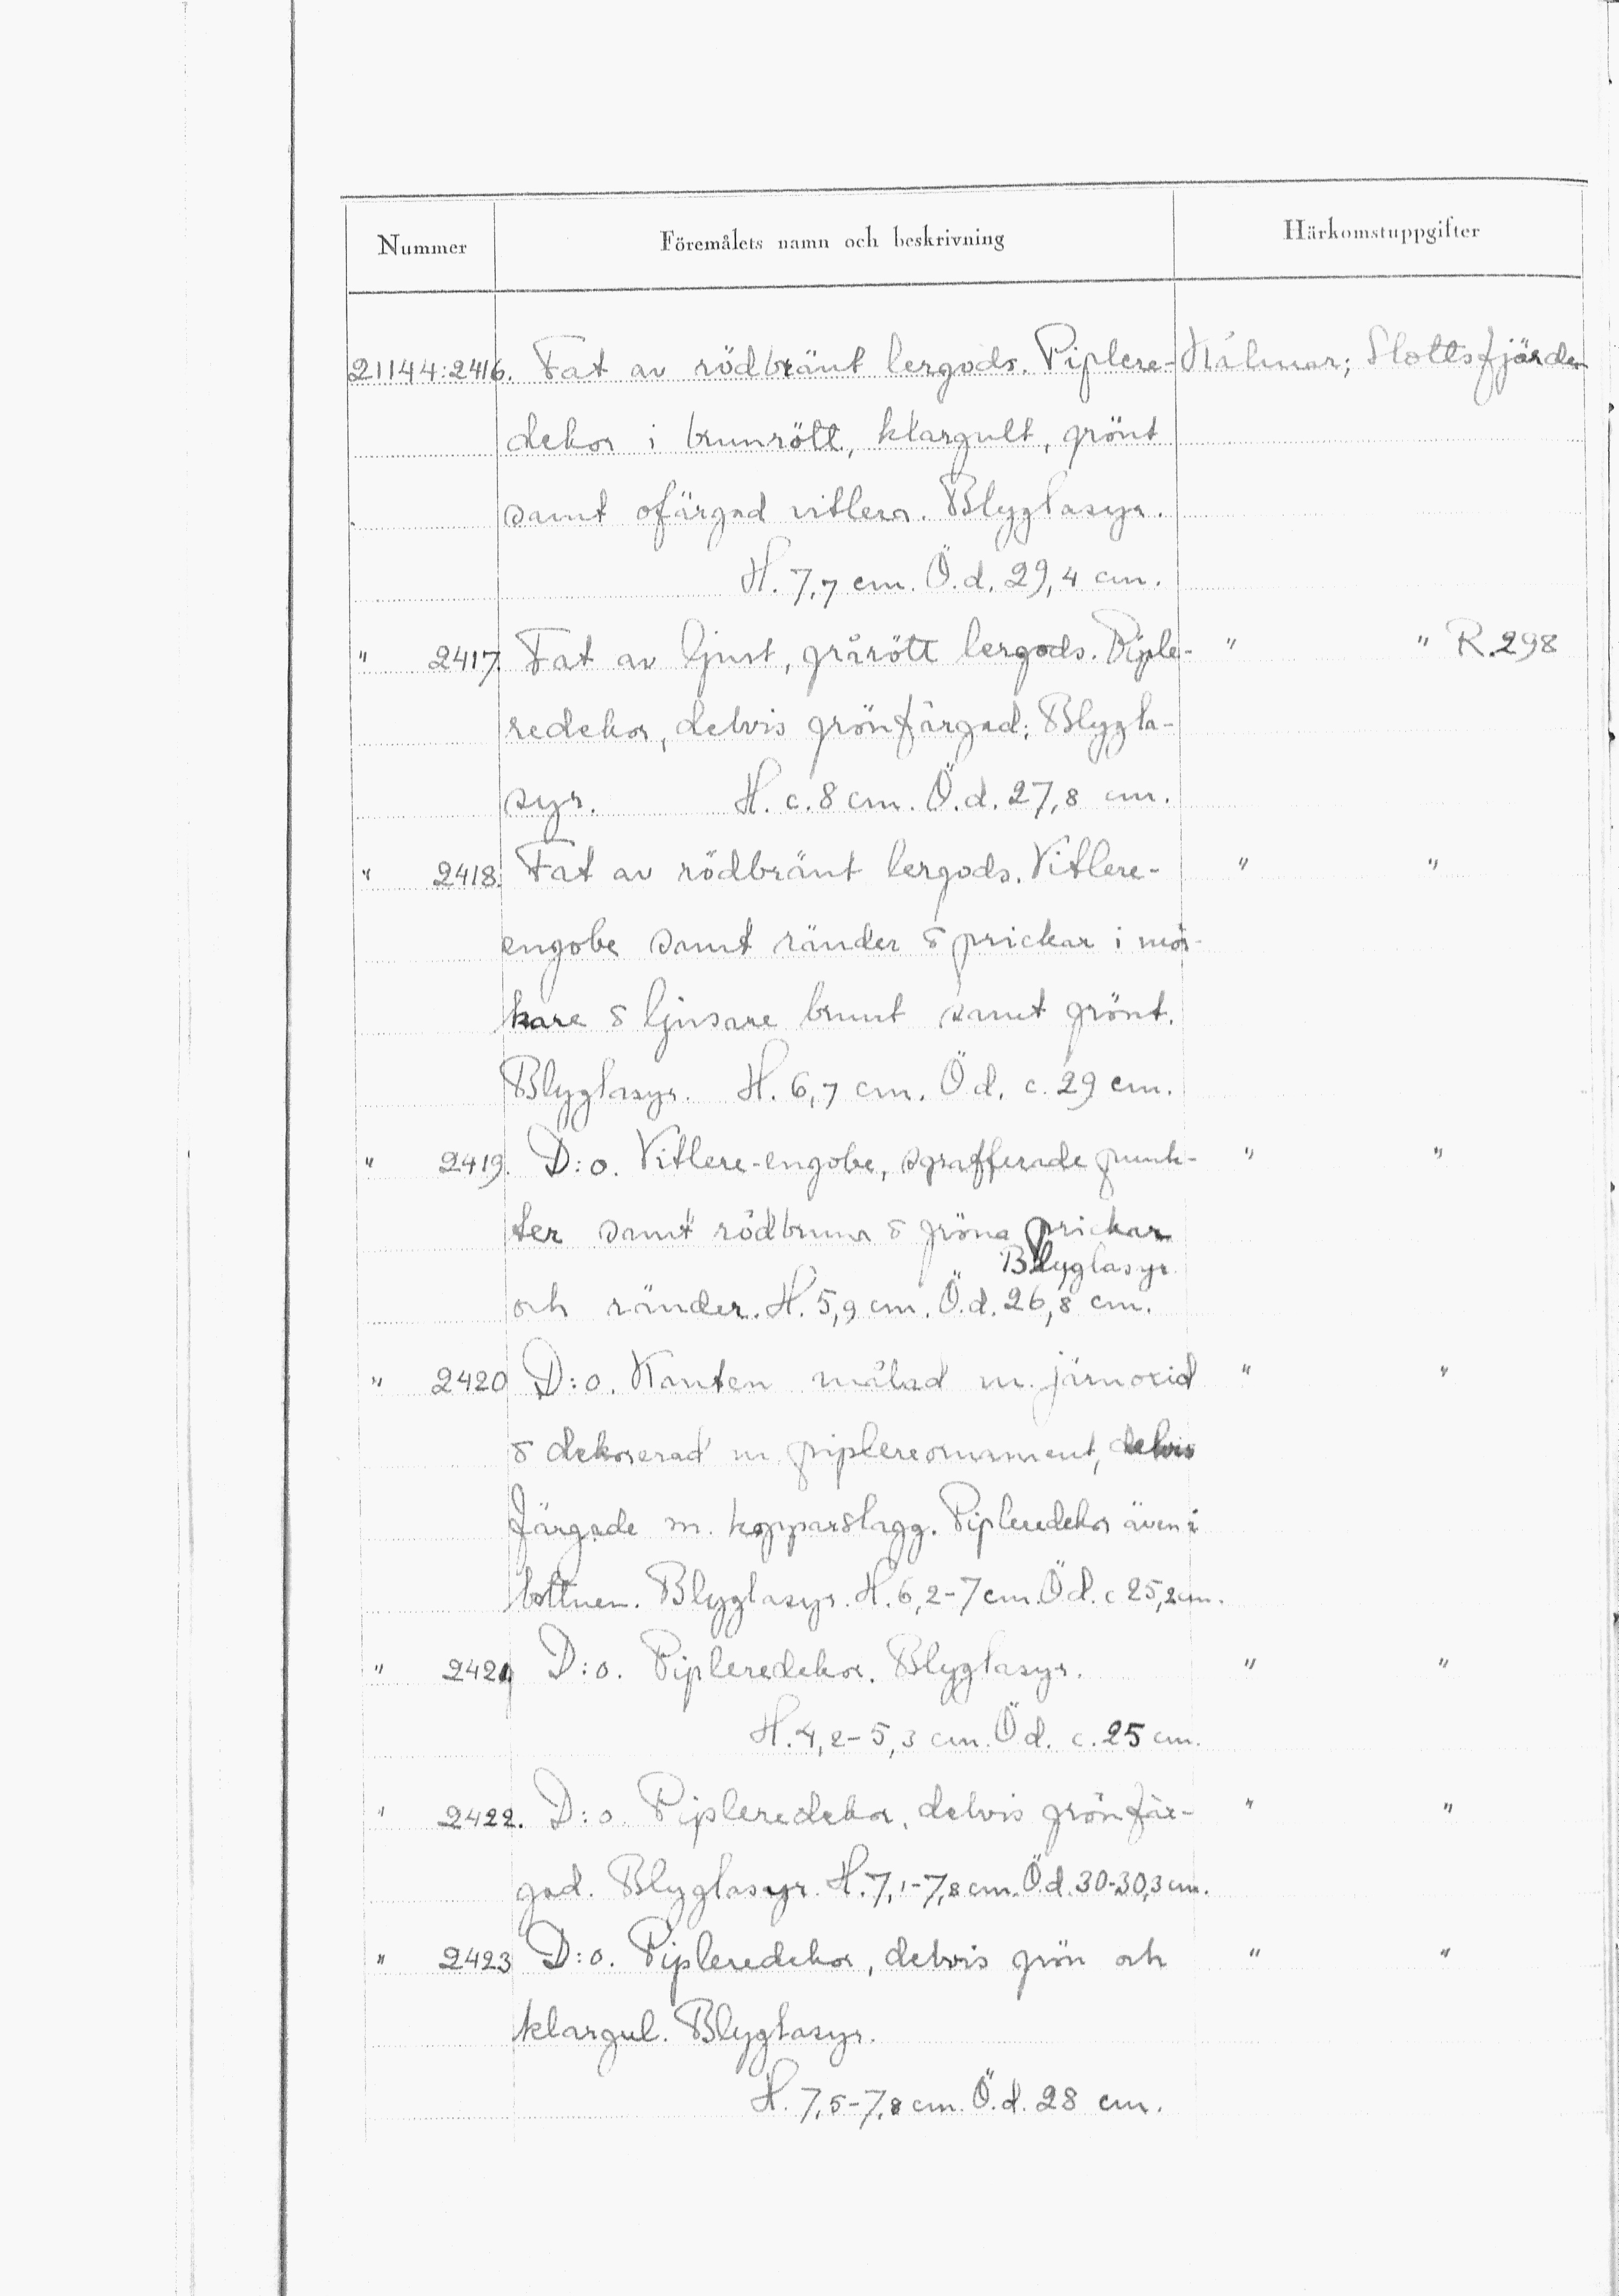 Nummer Föremålets namn och beskrivning Härkomstuppgifter
21144:2416. Fat av rödbränt lergods. Piplere- Kalmar; Slottsfjärden
dekor i brunrött, klargult, grönt
samt ofärgad vitlera. Blyglasyr.
H. 7,7 cm. Ö.d. 29,4 cm.
" 2417. Fat av ljust, grårött lergods. Piple- " " R.298
redekor, delvis grönfärgad; Blygla-
syr. H. c. 8 cm. Ö.d. 27,8 cm.
" 2418. Fat av rödbränt lergods. Vitlere- " "
engobe samt ränder & prickar i mör-
kare & ljusare brunt samt grönt.
Blyglasyr. H. 6,7 cm. Ö.d. c. 29 cm.
" 2419. D:o. Vitlere-engobe, sgrafferade punk- " "
ter samt rödbruna & gröna prickar
Blyglasyr.
och ränder. H. 5,9 cm. Ö.d. 26,8 cm.
" 2420 D:o. Kanten målad m. järnoxid " "
& dekorerad m piplereornament, delvis
färgade m. kopparslagg. Pipleredekor även i
bottnen. Blyglasyr. H. 6,2-7 cm. Ö.d. c 25,2 cm.
" 2421. D:o. Pipleredekor. Blyglasyr. " "
H. 4,2-5,3 cm. Ö.d. c. 25 cm.
" 2422. D:o. Pipleredekor, delvis grönfär- " "
gad. Blyglasyr. H. 7,1-7,8 cm. Ö.d. 30-30,3 cm.
" 2423 D:o. Pipleredekor, delvis grön och " "
klargul. Blyglasyr.
H. 7,5-7,8 cm. Ö.d. 28 cm.